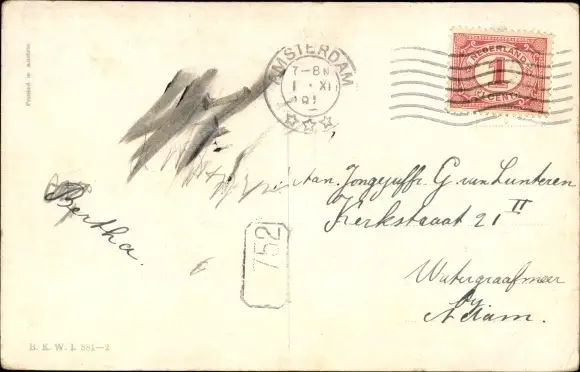 Printed in Austria
AMSTERDAM
7-8N
1 · XI
191
NEDERLAND
1
CENT
Aan. Jongejuffr. G. van Lunteren
Kerkstraat 21 II
Watergraafmeer
by
A'dam.
Bertha.
752
B. K. W. I. 881-2